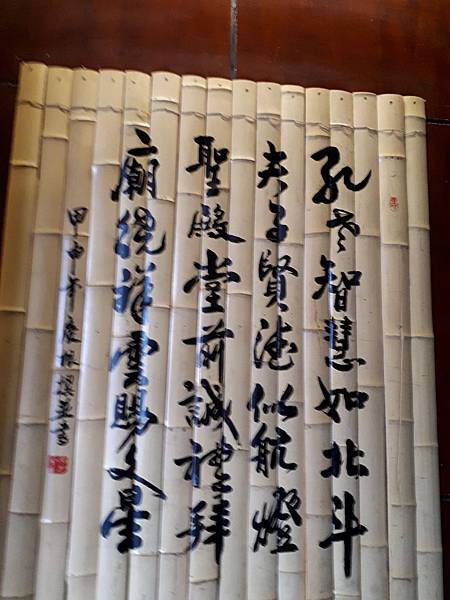 孔智慧如北斗
夫子賢德似航燈
聖殿堂前誠禮拜
廟繞祥雲賜文星
甲申年振撰並書